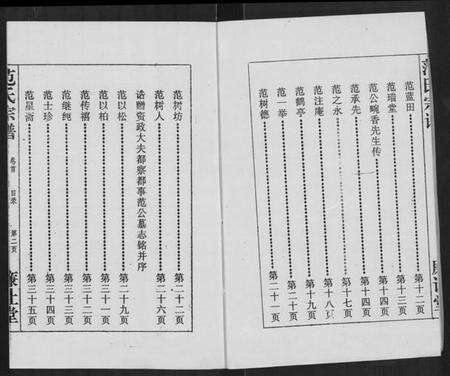 范氏宗谱
范蓝田 第十二页
范瑞堂 第十三页
范公畹香先生传 第十四页
范承先 第十四页
范之永 第十七页
范注庵 第十八页
范鹤亭 第十九页
范一举 第二十页
范树德 第二十一页
范树坊 第二十二页
范树人 第二十六页
诰赠资政大夫都察都事范公墓志铭并序
范以松 第二十九页
范以柏 第三十一页
范传禧 第三十二页
范继绳 第三十三页
范士珍 第三十四页
范星斋 第三十五页
范氏宗谱 卷首 目录 第二页